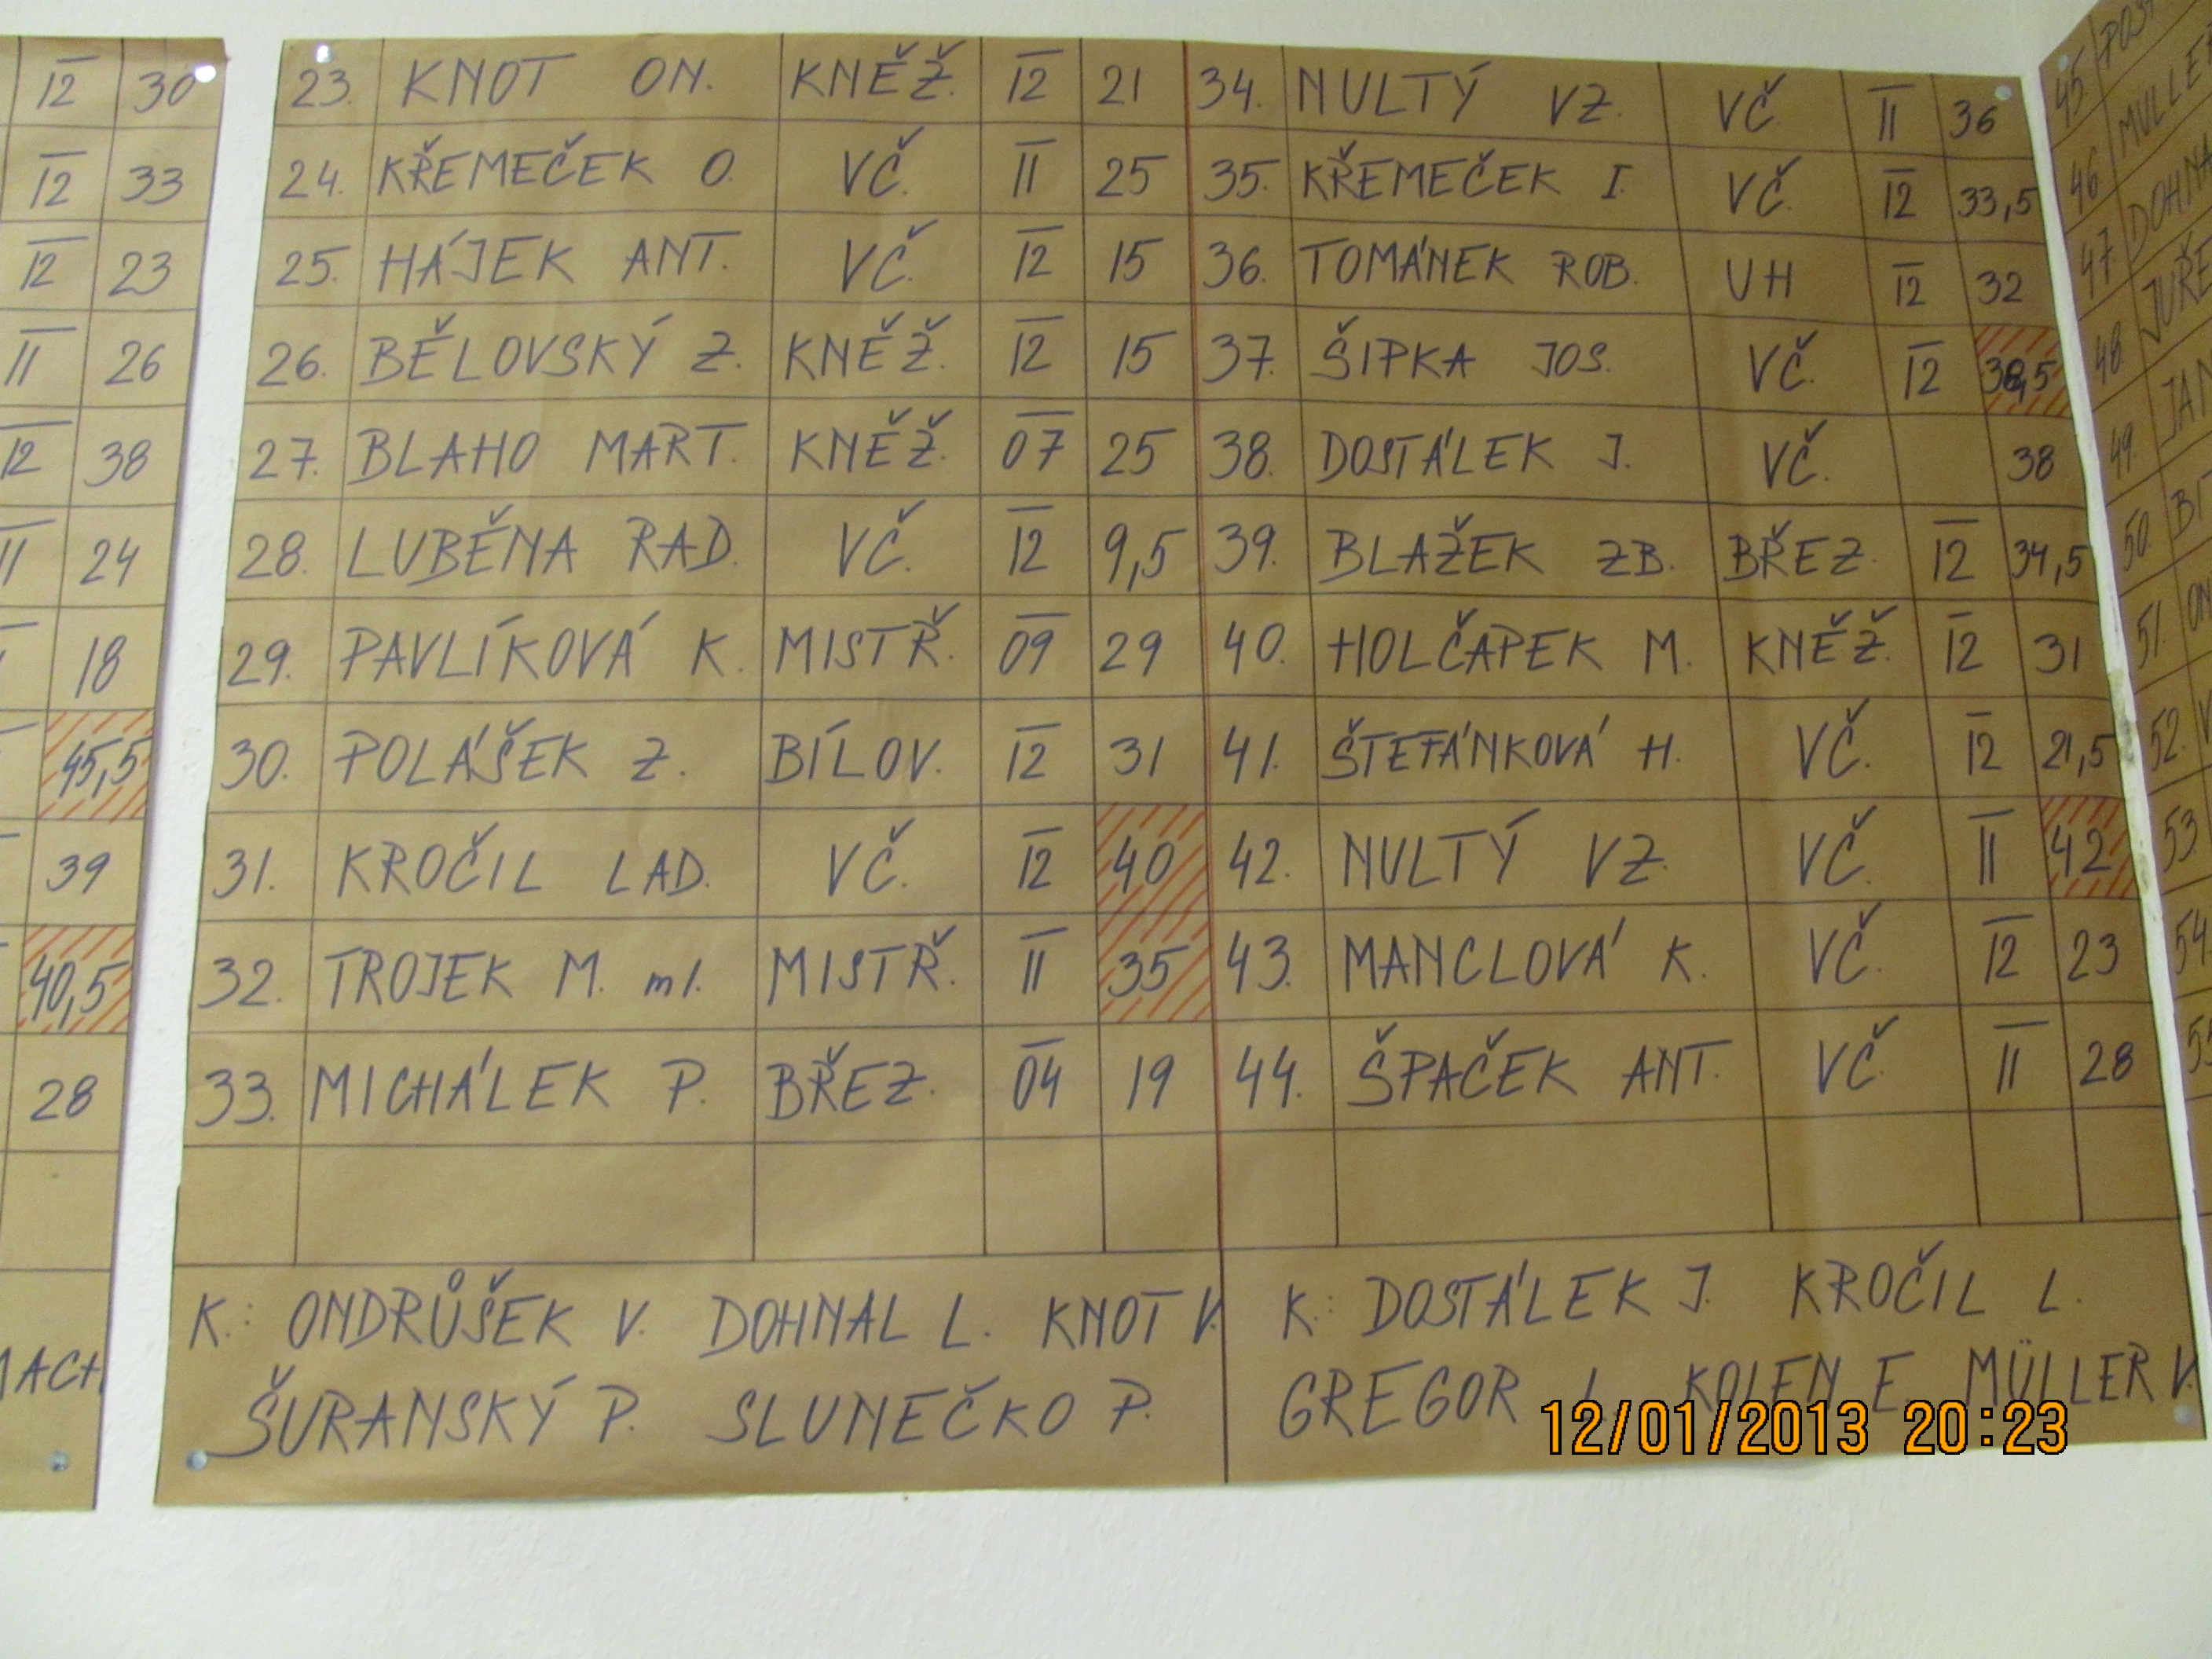 12 30
12 33
12 23
11 26
12 38
11 24
18
45,5
39
40,5
28
23. KNOT ON. KNĚŽ. 12 21
24. KŘEMEČEK O. VČ. 11 25
25. HÁJEK ANT. VČ. 12 15
26. BĚLOVSKÝ Z. KNĚŽ. 12 15
27. BLAHO MART. KNĚŽ. 07 25
28. LUBĚNA RAD. VČ. 12 9,5
29. PAVLÍKOVÁ K. MISTŘ. 09 29
30. POLÁŠEK Z. BÍLOV. 12 31
31. KROČIL LAD. VČ. 12 40
32. TROJEK M. ml. MISTŘ. 11 35
33. MICHÁLEK P. BŘEZ. 04 19
K.: ONDRŮŠEK V. DOHNAL L. KNOT V.
ŠURANSKÝ P. SLUNEČKO P.
34. NULTÝ VZ. VČ. 11 36
35. KŘEMEČEK I. VČ. 12 33,5
36. TOMÁNEK ROB. UH 12 32
37. ŠIPKA JOS. VČ. 12
38. DOSTÁLEK J. VČ. 38
39. BLAŽEK ZB. BŘEZ. 12 34,5
40. HOLČAPEK M. KNĚŽ. 12 31
41. ŠTEFÁNKOVÁ H. VČ. 12 21,5
42. NULTÝ VZ. VČ. 11 42
43. MANCLOVÁ K. VČ. 12 23
44. ŠPAČEK ANT. VČ. 11 28
K.: DOSTÁLEK J. KROČIL L.
GREGOR KOLEN E. MÜLLER V.
45.
46.
47.
48
49.
50.
51.
52.
53
54.
12/01/2013 20:23